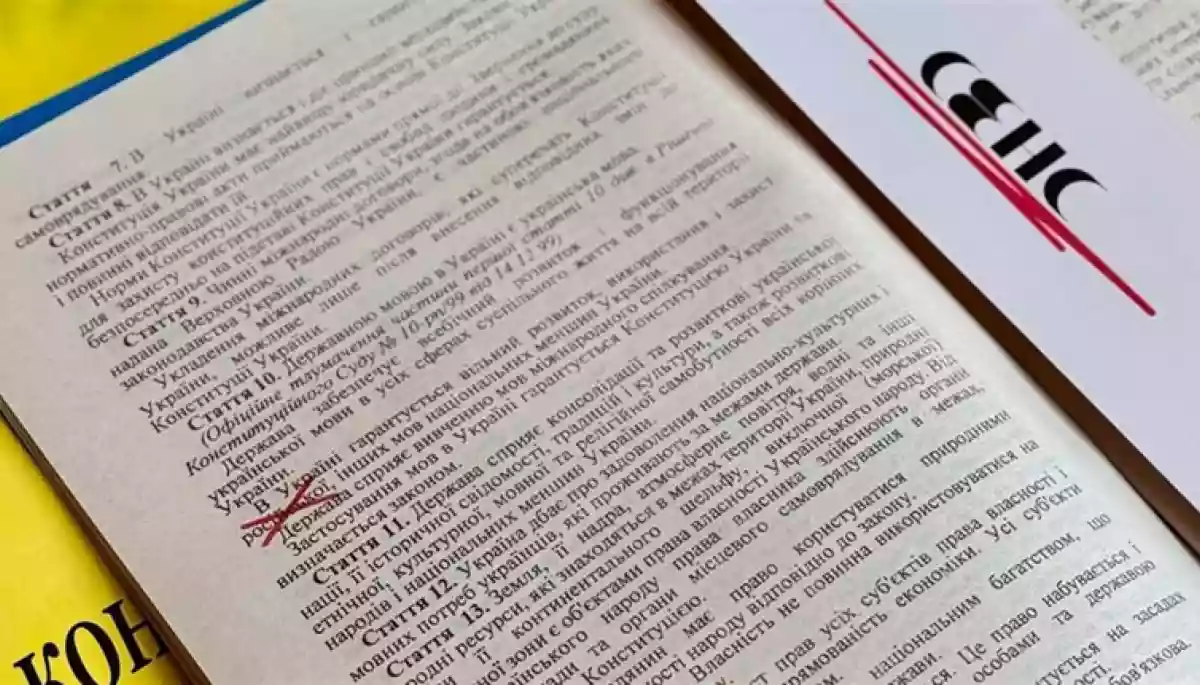 Стаття 7. В Україні визнається і
самоврядування
Стаття 8. В Україні визнається і діє принцип
Конституція України має найвищу юридичну силу. Закони
нормативно-правові акти приймаються на основі Конституції
і повинні відповідати їй.
Норми Конституції України є нормами прямої дії. Звернення до суду
для захисту конституційних прав і свобод людини і громадянина
безпосередньо на підставі Конституції України гарантується.
Стаття 9. Чинні міжнародні договори, згода на обов'язковість яких
надана Верховною Радою України, є частиною національного
законодавства України.
Укладення міжнародних договорів, які суперечать Конституції
України, можливе лише після внесення відповідних змін до
Конституції України.
Стаття 10. Державною мовою в Україні є українська мова.
(Офіційне тлумачення частини першої статті 10 див. в Рішенні
Конституційного Суду № 10-рп/99 від 14.12.99)
Держава забезпечує всебічний розвиток і функціонування
української мови в усіх сферах суспільного життя на всій території
України.
В Україні гарантується вільний розвиток, використання і захист
російської, інших мов національних меншин України.
Держава сприяє вивченню мов міжнародного спілкування.
Застосування мов в Україні гарантується Конституцією України та
визначається законом.
Стаття 11. Держава сприяє консолідації та розвиткові української
нації, її історичної свідомості, традицій і культури, а також розвиткові
етнічної, культурної, мовної та релігійної самобутності всіх корінних
народів і національних меншин України.
Стаття 12. Україна дбає про задоволення національно-культурних і
мовних потреб українців, які проживають за межами держави.
Стаття 13. Земля, її надра, атмосферне повітря, водні та інші
родні ресурси, які знаходяться в межах території України, природні
її континентального шельфу, виключної (морської)
ної зони є об'єктами права власності Українського народу. Від
їнського народу права власника здійснюють органи
ади та органи місцевого самоврядування в межах,
Конституцією.
янин має право користуватися природними
ості народу відповідно до закону.
Власність не повинна використовуватися на
ст прав усіх суб'єктів права власності і
рямованість економіки. Усі суб'єкти
національним багатством, що
ржави.
ся. Це право набувається і
особами та державою
тується на засадах
ності.
бов'язкова.
СЕНС
КОН